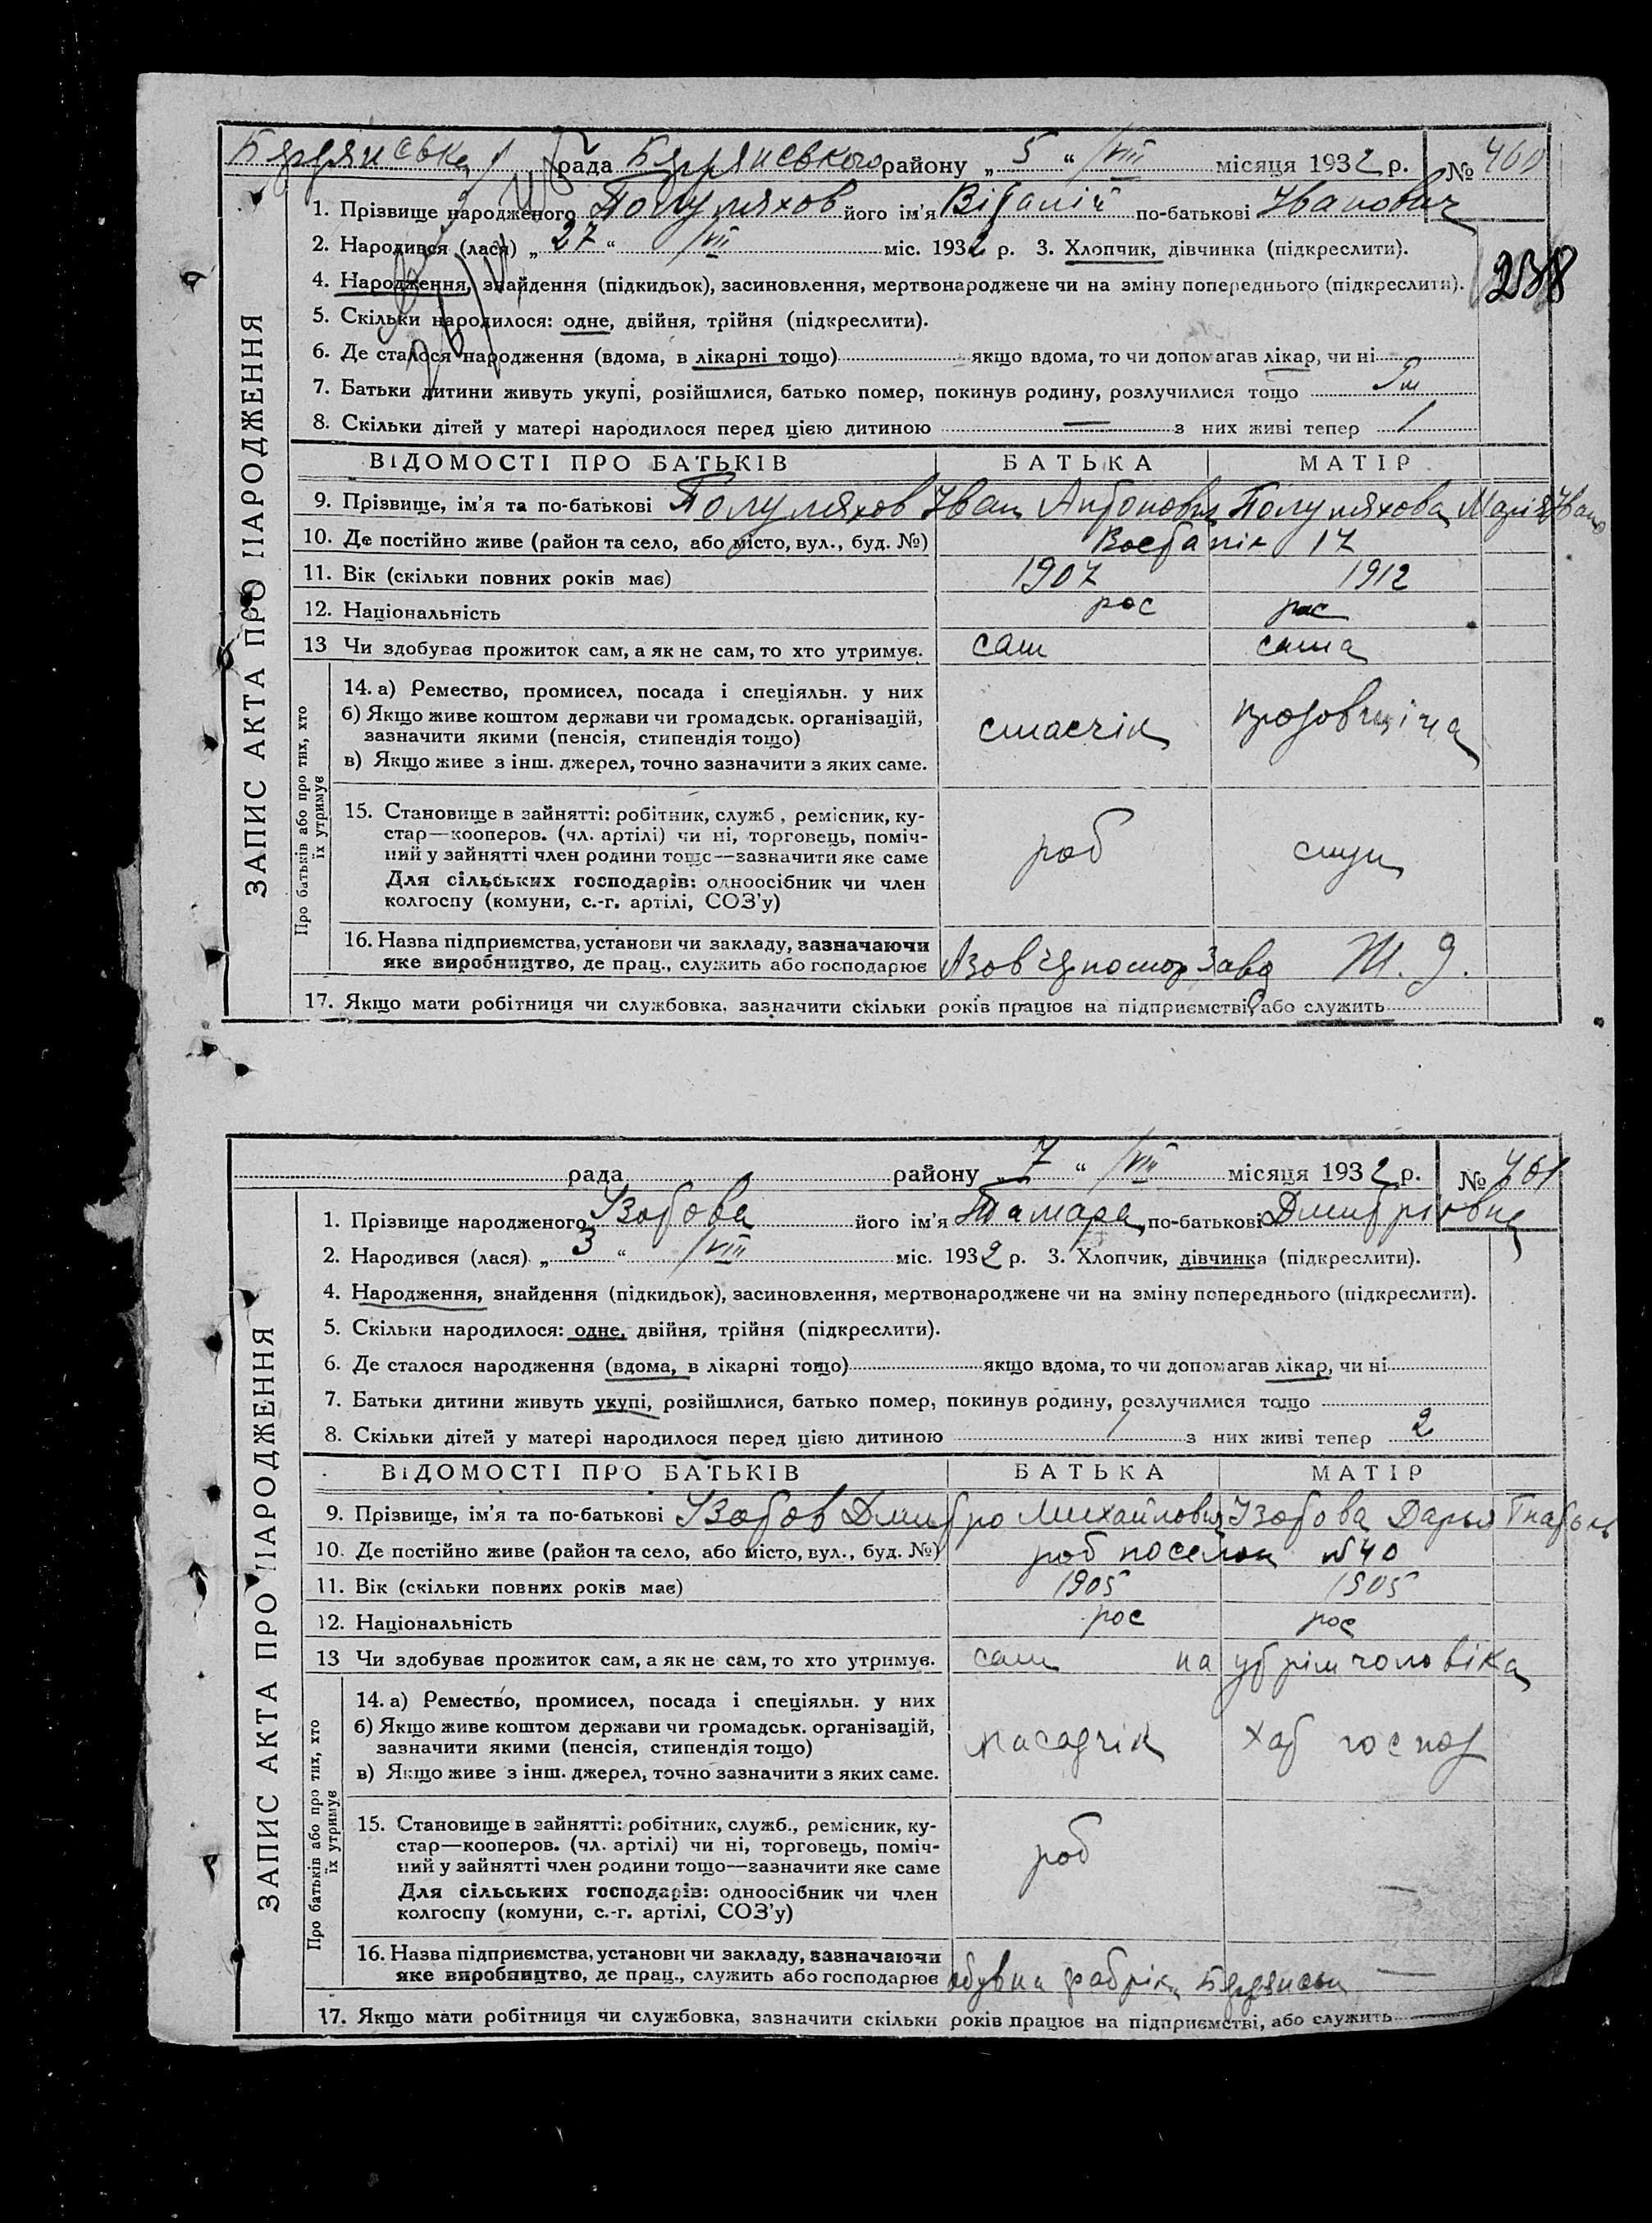 Бердянська рада Бердянського району „ 5 “ VIII місяця 1932 р. № 460
1. Прізвище народженого Полуляхов його ім'я Віталій по-батькові Иванович
2. Народився (лася) „ 27 “ VII міс. 1932 р. 3. Хлопчик, дівчинка (підкреслити).
238
4. Народження, знайдення (підкидьок), засиновлення, мертвонароджене чи на зміну попереднього (підкреслити).
5. Скільки народилося: одне, двійня, трійня (підкреслити).
6. Де сталося народження (вдома, в лікарні тощо) якщо вдома, то чи допомагав лікар, чи ні
7. Батьки дитини живуть укупі, розійшлися, батько помер, покинув родину, розлучилися тощо
8. Скільки дітей у матері народилося перед цією дитиною — з них живі тепер 1
ЗАПИС АКТА ПРО НАРОДЖЕННЯ
ВІДОМОСТІ ПРО БАТЬКІВ БАТЬКА МАТІР
9. Прізвище, ім'я та по-батькові Полуляхов Иван Антонович Полуляхова Марія Иван
10. Де постійно живе (район та село, або місто, вул., буд. №) 17
11. Вік (скільки повних років має) 1907 1912
12. Національність рос рос
13 Чи здобував прожиток сам, а як не сам, то хто утримує. сам сама
Про батьків або про тих, хто їх утримує
14. а) Ремество, промисел, посада і спеціяльн. у них
б) Якщо живе коштом держави чи громадськ. організацій,
зазначити якими (пенсія, стипендія тощо)
в) Якщо живе з інш. джерел, точно зазначити з яких саме.
15. Становище в зайнятті: робітник, служб., ремісник, ку-
стар—кооперов. (чл. артілі) чи ні, торговець, поміч-
ний у зайнятті член родини тощо—зазначити яке саме
роб служ
Для сільських господарів: одноосібник чи член
колгоспу (комуни, с.-г. артілі, СОЗ'у)
16. Назва підприємства, установи чи закладу, зазначаючи
яке виробництво, де прац., служить або господарює завод
17. Якщо мати робітниця чи службовка, зазначити скільки років працює на підприємстві, або служить
рада району „ 7 “ VIII місяця 1932 р. № 461
1. Прізвище народженого Изотова його ім'я Тамара по-батькові Дмитрівна
2. Народився (лася) „ 3 “ VIII міс. 1932 р. 3. Хлопчик, дівчинка (підкреслити).
4. Народження, знайдення (підкидьок), засиновлення, мертвонароджене чи на зміну попереднього (підкреслити).
5. Скільки народилося: одне, двійня, трійня (підкреслити).
6. Де сталося народження (вдома, в лікарні тощо) якщо вдома, то чи допомагав лікар, чи ні
7. Батьки дитини живуть укупі, розійшлися, батько помер, покинув родину, розлучилися тощо
8. Скільки дітей у матері народилося перед цією дитиною 1 з них живі тепер 2
ЗАПИС АКТА ПРО НАРОДЖЕННЯ
ВІДОМОСТІ ПРО БАТЬКІВ БАТЬКА МАТІР
9. Прізвище, ім'я та по-батькові Изотов Дмитро Михайлович Изотова Дарья
10. Де постійно живе (район та село, або місто, вул., буд. №) роб поселок №40
11. Вік (скільки повних років має) 1905 1905
12. Національність рос рос
13 Чи здобував прожиток сам, а як не сам, то хто утримує. сам на утрім чоловіка
Про батьків або про тих, хто їх утримує
14. а) Ремество, промисел, посада і спеціяльн. у них
б) Якщо живе коштом держави чи громадськ. організацій,
зазначити якими (пенсія, стипендія тощо)
в) Якщо живе з інш. джерел, точно зазначити з яких саме.
хат госпо
15. Становище в зайнятті: робітник, служб., ремісник, ку-
стар—кооперов. (чл. артілі) чи ні, торговець, поміч-
ний у зайнятті член родини тощо—зазначити яке саме
роб —
Для сільських господарів: одноосібник чи член
колгоспу (комуни, с.-г. артілі, СОЗ'у)
16. Назва підприємства, установи чи закладу, зазначаючи
яке виробництво, де прац., служить або господарює обувна фабріка —
17. Якщо мати робітниця чи службовка, зазначити скільки років працює на підприємстві, або служить